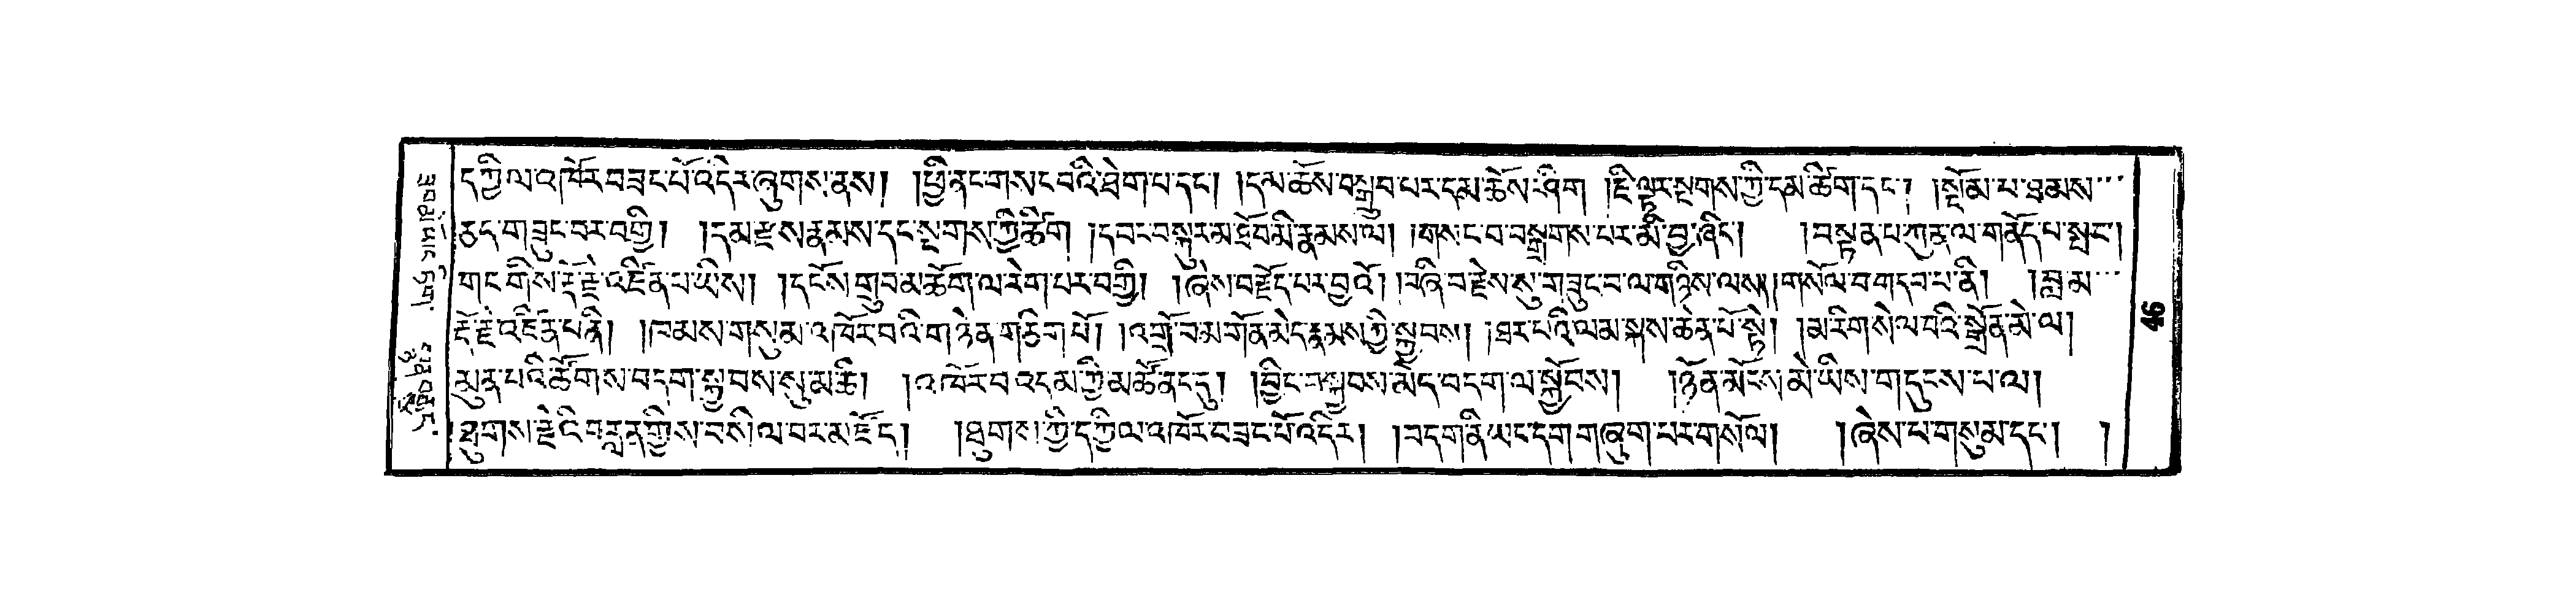 དཀྱིལ་འཁོར་བཟང་པོ་འདིར་ཞུགས་ནས། །ཕྱི་ནང་གསང་བའི་ཐེག་པ་དང་། །དམ་ཆོས་བསྒྲུབ་པར་དམ་ཆོས་ཤིག །ཇི་ལྟར་སྔགས་ཀྱི་དམ་ཚིག་དང་། །སྡོམ་པ་ཐམས་
ཅད་གཟུང་བར་བགྱི། །དམ་རྫས་རྣམས་དང་སྔགས་ཀྱི་ཚིག །དབང་བསྐུར་མ་ཐོབ་མི་རྣམས་ལ། །གསང་བ་བསྒྲགས་པར་མི་བྱ་ཞིང་། །བསྟན་པ་ཀུན་ལ་གནོད་པ་སྤང་།
གང་གིས་རྡོ་རྗེ་འཛིན་པ་ཡིས། །དངོས་གྲུབ་མཆོག་ལ་རེག་པར་བགྱི། །ཞེས་བརྗོད་པར་བྱའོ། །བཞི་བ་རྗེས་སུ་གཟུང་བ་ལ་གཉིས་ལས། །གསོལ་བ་གདབ་པ་ནི། །བླ་མ་
རྡོ་རྗེ་འཛིན་པ་ནི། །ཁམས་གསུམ་འཁོར་བའི་གཉེན་གཅིག་པོ། །འགྲོ་བ་མགོན་མེད་རྣམས་ཀྱི་སྐྱབས། །ཐར་པའི་ལམ་སྐས་ཆེན་པོ་སྟེ། །མ་རིག་སེལ་བའི་སྒྲོན་མེ་ལ།
མུན་པའི་ཚོགས་བདག་སྐྱབས་སུ་མཆི། །འཁོར་བ་འདམ་ཀྱི་མཚོ་ནང་དུ། །བྱིང་བ་སྐྱབས་མེད་བདག་ལ་སྐྱོབས། །ཉོན་མོངས་མེ་ཡིས་གདུངས་པ་ལ།
ཐུགས་རྗེའི་བརླན་གྱིས་བསིལ་བར་མཛོད། །ཐུགས་ཀྱི་དཀྱིལ་འཁོར་བཟང་པོ་འདིར། །བདག་ནི་ཡང་དག་གཞུག་པར་གསོལ། །ཞེས་པ་གསུམ་དང་། །